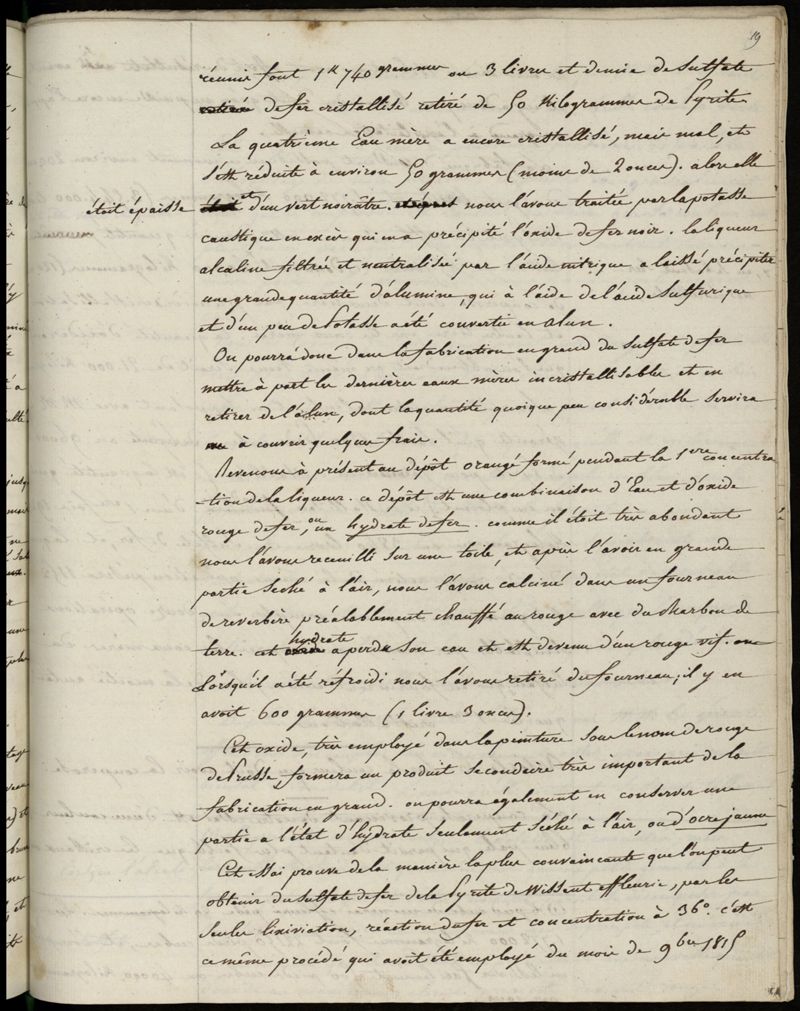 19
réunis font 1k 740 grammes ou 3 livres et demie de Sulfate
de fer cristallisé retiré de 50 Kilogrammes de Pyrite
La quatrième Eau mère a encore cristallisé, mais mal, et
s'est réduite à environ 50 grammes (moins de 2 onces). alors elle
étoit épaisse étoit et d'un vert noirâtre. nous l'avons traitée par la potasse
caustique en excès qui en a précipité l'oxide de fer noir. la liqueur
alcaline filtrée et neutralisée par l'acide nitrique a laissé précipiter
une grande quantité d'alumine, qui à l'aide de l'acide Sulfurique
et d'un peu de Potasse a été convertie en alun.
On pourra donc dans la fabrication en grand du sulfate de fer
mettre à part les dernières eaux mères incristallisables et en
retirer de l'alun, dont la quantité quoique peu considérable servira
à couvrir quelques frais.
Revenons à présent au dépôt orangé formé pendant la 1ere concentra
-tion de la liqueur. ce dépôt est une combinaison d'Eau et d'oxide
rouge de fer, ou un hydrate de fer. comme il étoit très abondant
nous l'avons recueilli sur une toile, et après l'avoir en grande
partie Seché à l'air, nous l'avons calciné dans un fourneau
de reverbère préalablement chauffé au rouge avec du charbon de
terre. cet hydrate a perdu son eau et est devenu d'un rouge vif.
Lorsqu'il a été réfroidi nous l'avons retiré du fourneau; il y en
avoit 600 grammes (1 livre 3 onces).
Cet oxide, très employé dans la peinture sous le nom de rouge
de Prusse, formera un produit secondaire très important de la
fabrication en grand. on pourra également en conserver une
partie a l'état d'hydrate seulement Séché à l'air, ou d'ocre jaune
Cet essai prouve de la manière la plus convaincante que l'on peut
obtenir du sulfate de fer de la Pyrite de Wissent effleurie, par les
seules lixiviation, réaction du fer et concentration à 36°. c'est
ce même procédé qui avoit été employé du mois de 9bre 1815